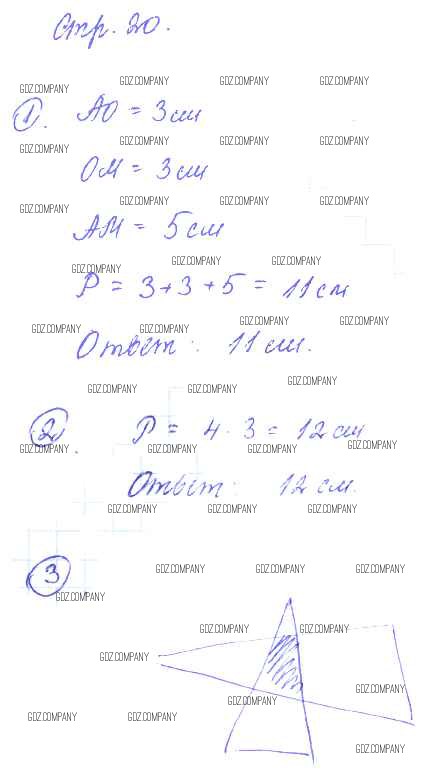 Стр. 20.
GDZ.COMPANY GDZ.COMPANY GDZ.COMPANY GDZ.COMPANY
1. АО = 3 см
GDZ.COMPANY GDZ.COMPANY GDZ.COMPANY GDZ.COMPANY
ОМ = 3 см
GDZ.COMPANY GDZ.COMPANY GDZ.COMPANY GDZ.COMPANY
АМ = 5 см
GDZ.COMPANY GDZ.COMPANY GDZ.COMPANY
Р = 3+3+5 = 11 см
GDZ.COMPANY GDZ.COMPANY GDZ.COMPANY GDZ.COMPANY
Ответ: 11 см.
GDZ.COMPANY GDZ.COMPANY GDZ.COMPANY
2. Р = 4 · 3 = 12 см
GDZ.COMPANY GDZ.COMPANY GDZ.COMPANY GDZ.COMPANY
Ответ: 12 см.
GDZ.COMPANY GDZ.COMPANY GDZ.COMPANY
3
GDZ.COMPANY GDZ.COMPANY GDZ.COMPANY
GDZ.COMPANY
GDZ.COMPANY GDZ.COMPANY
GDZ.COMPANY
GDZ.COMPANY GDZ.COMPANY
GDZ.COMPANY GDZ.COMPANY
GDZ.COMPANY